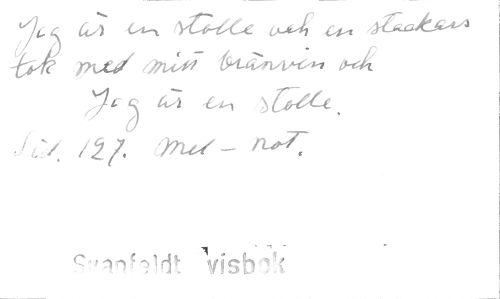 Jag är en stolle och en stackars
tok med mitt bränvin och
Jag är en stolle.
Sid. 127. Mel-not.
Svanfeldt visbok